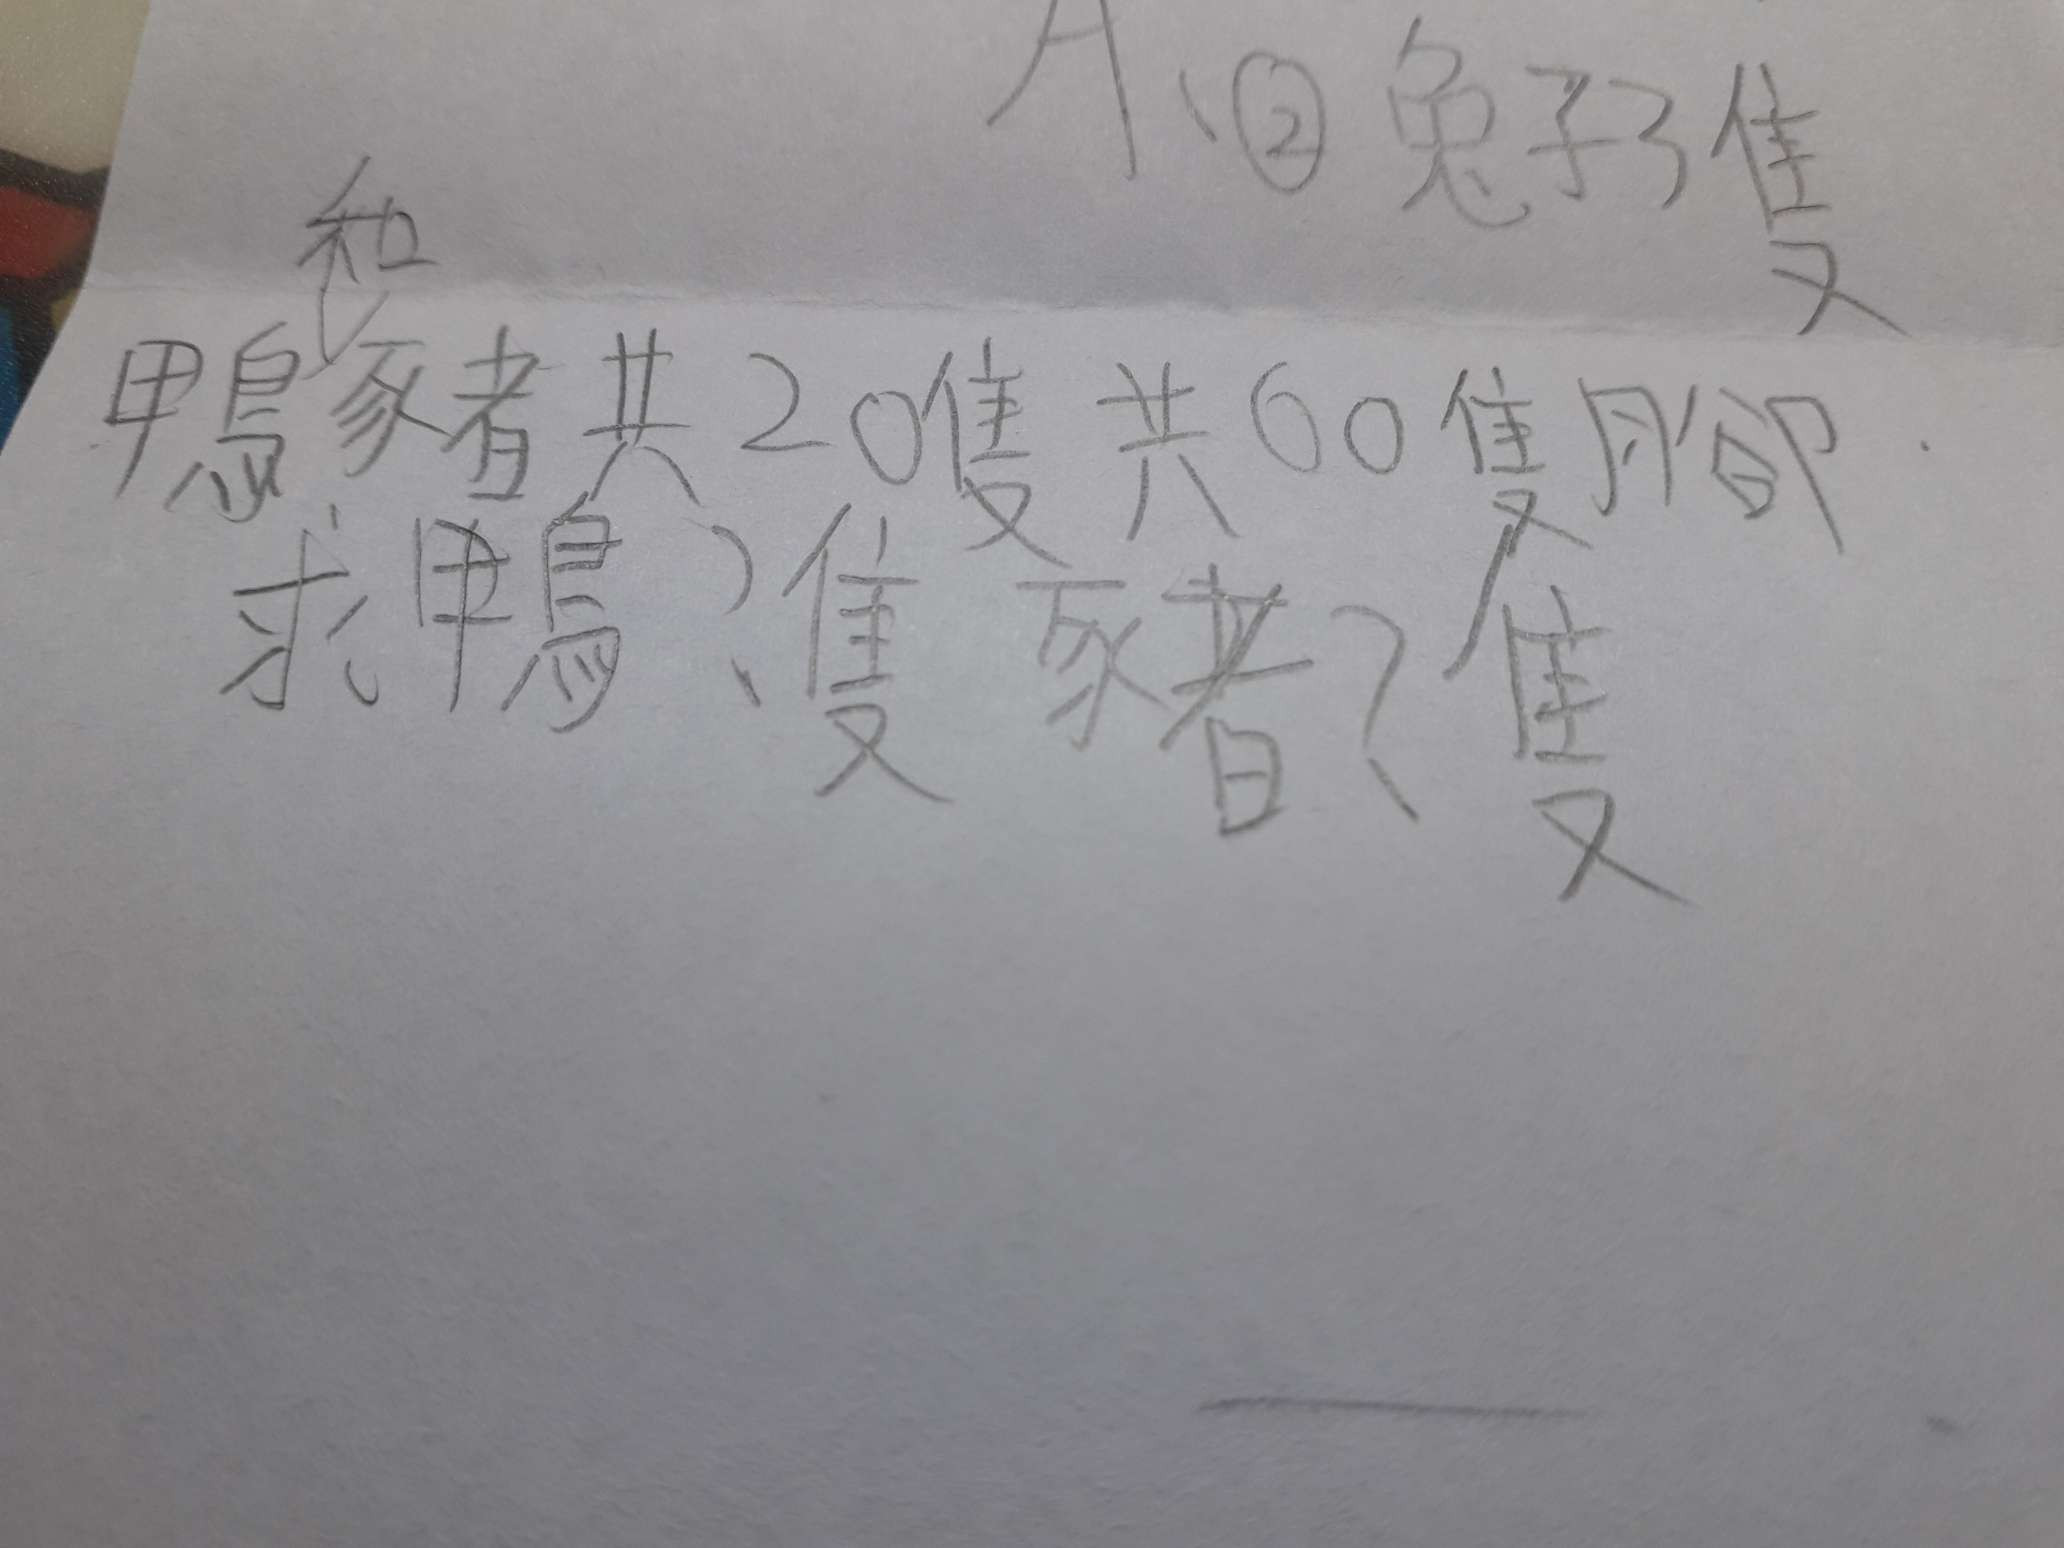 A、② 兔子3隻
鴨和豬共20隻共60隻腳
求鴨?隻 豬?隻